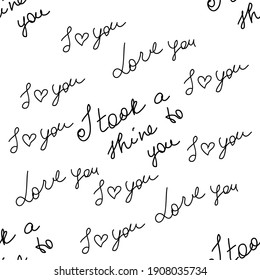 you
I
sh
I ♡ you
Love you
I ♡ you
I ♡ you
I took a
shine to
you
I ♡ you
Love you
I ♡ you
Love you
I ♡ you
k a
ne to
you
I too
shin
www.shutterstock.com · 1908035734